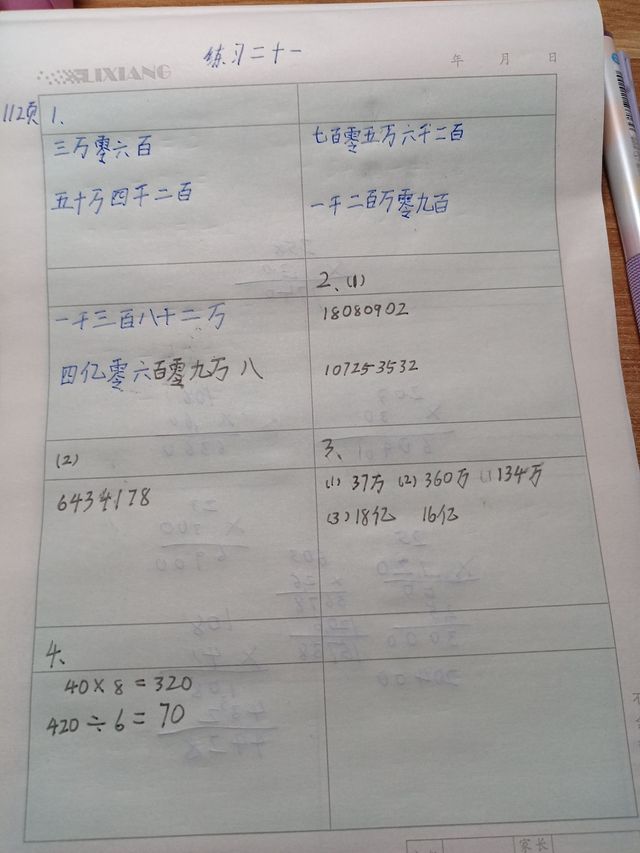 练习二十一
LIXIANG
年 月 日
112页 1、
三万零六百
五十万四千二百
七百零五万六千二百
一千二百万零九百
一千三百八十二万
四亿零六百零九万八
2、(1)
18080902
107253532
(2)
6434178
3、
(1) 37万 (2) 360万 (1) 134万
(3) 18亿 16亿
4、
40×8=320
420÷6=70
家长